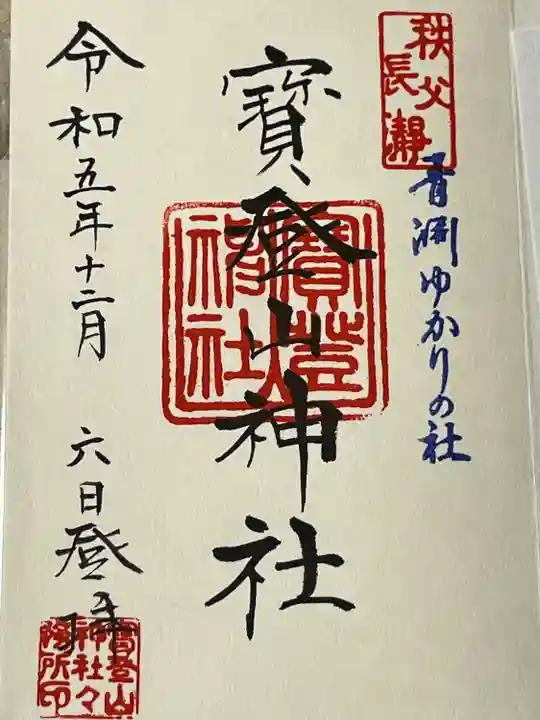 秩父
長瀞
青淵ゆかりの社
寳登山神社
寳登山
神社
令和五年十二月 六日登拝
寳登山
神社々
務所印